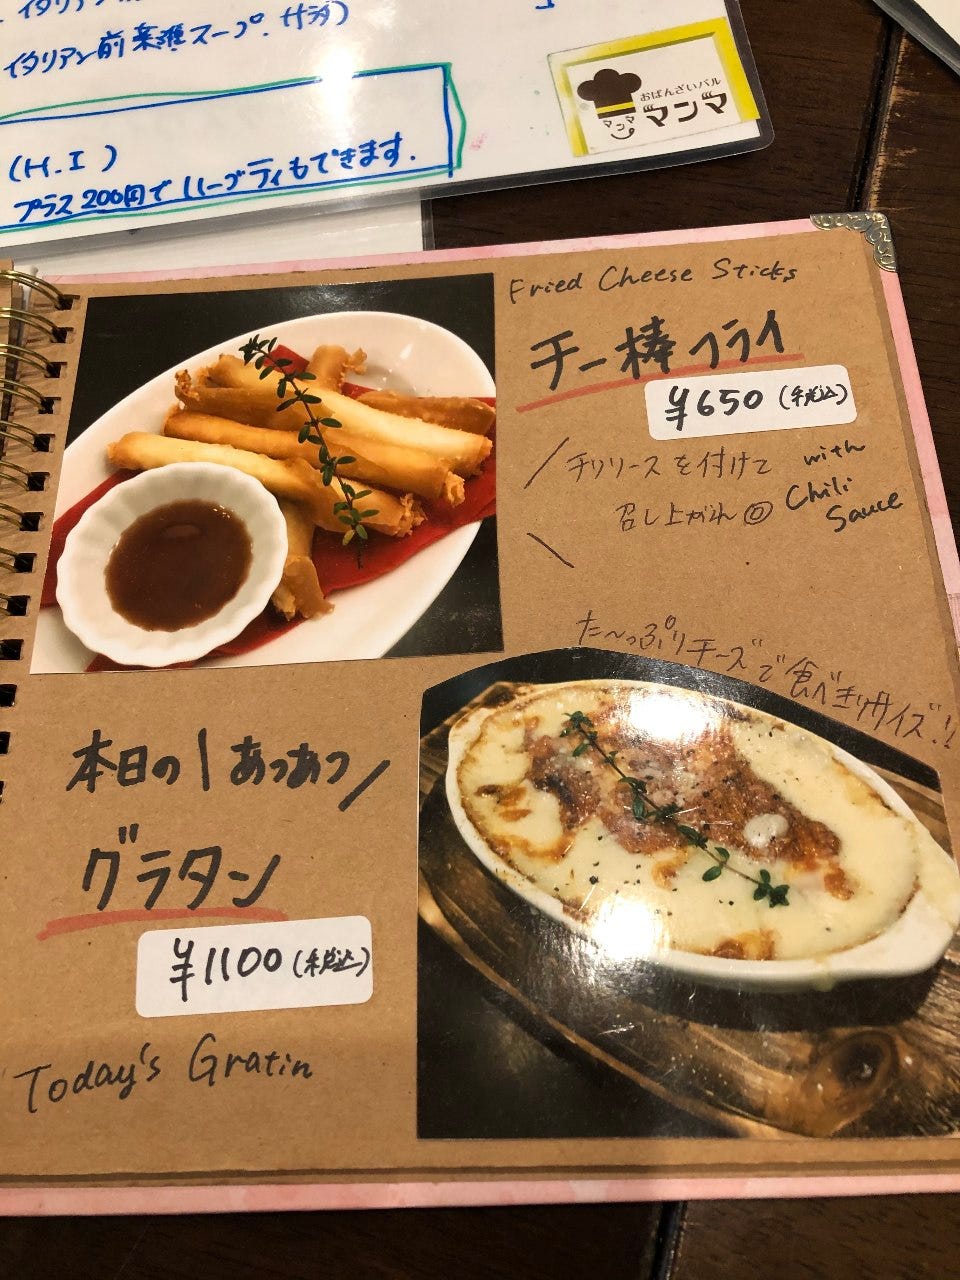 イタリアン
イタリアン前菜、スープ、サラダ)
(H.I)
プラス200円でハーブティもできます.
おばんざいバル
マンマ
マンマ
Fried Cheese Sticks
チー棒フライ
¥650(税込)
チリソースを付けて
召し上がれ
with
Chili
Sauce
た〜っぷりチーズで食べきりサイズ!!
本日の\あつあつ/
グラタン
¥1100(税込)
Today's Gratin